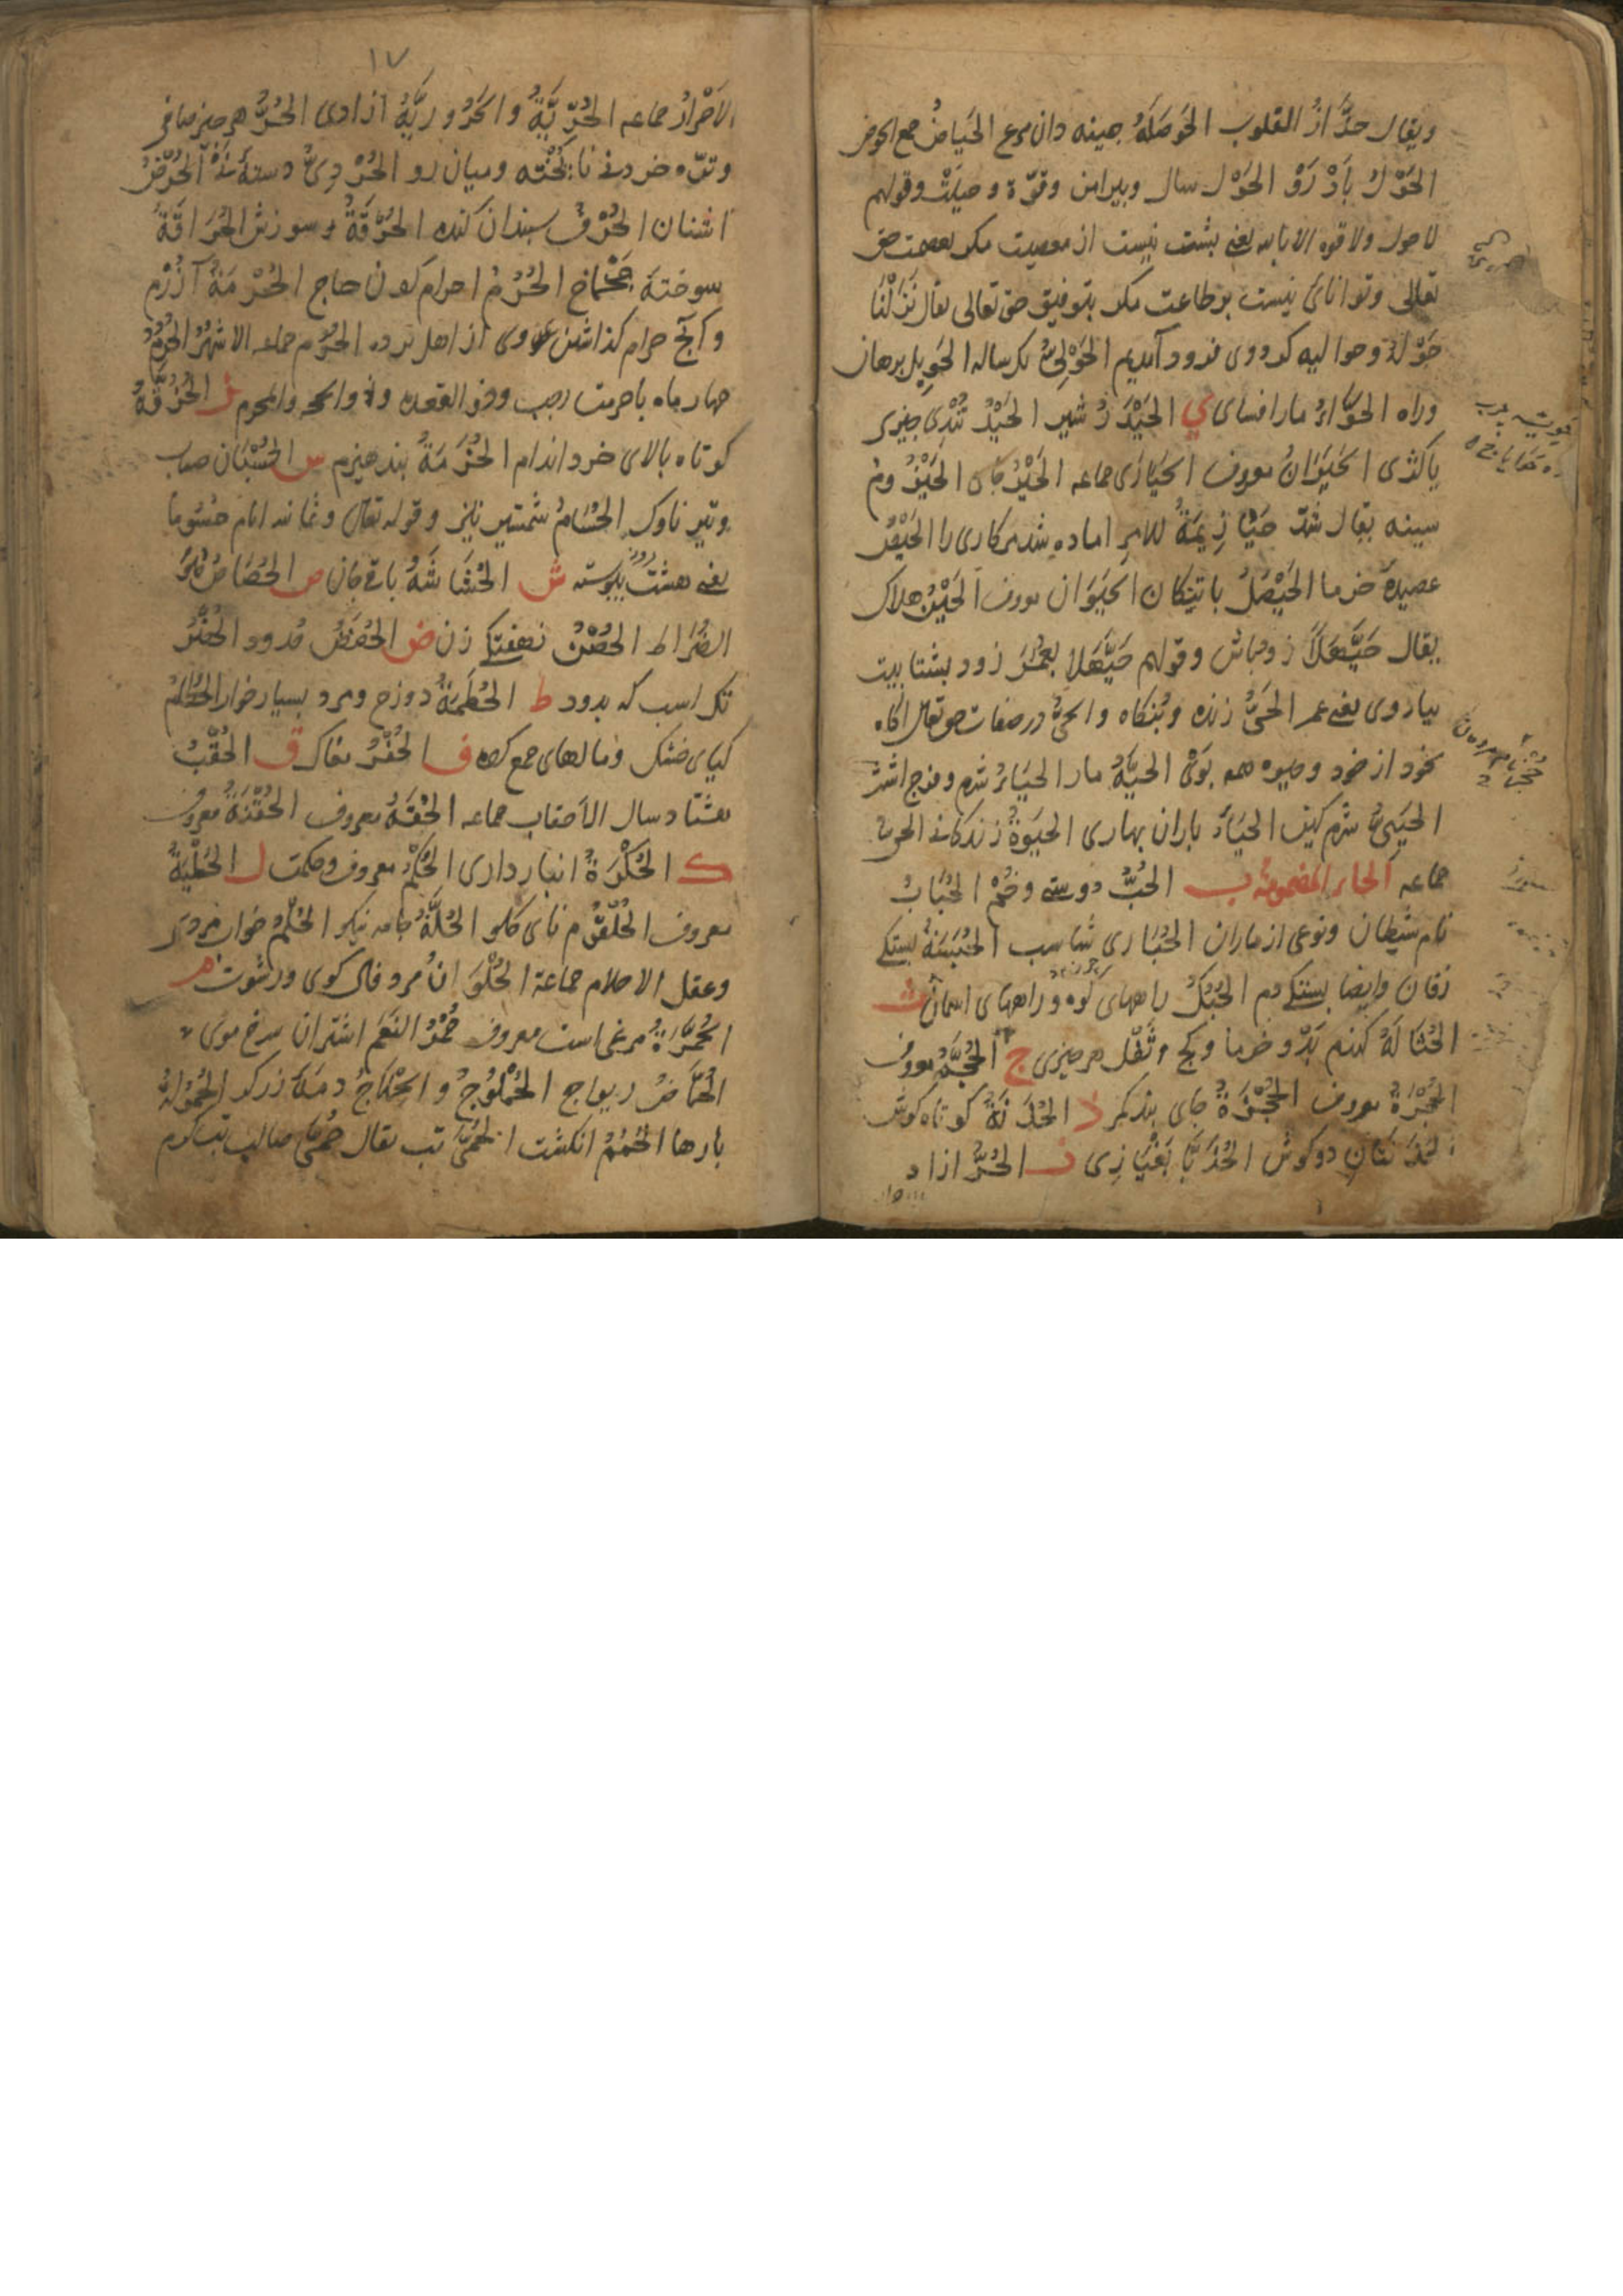 ويقال حدّاز القلوب الحَوصَلَةُ چينه دان مرغ الحِيَاضُ جمع الحوض
الحَوْكُ بَادْرَوْ الحَوْل سال وپيرامن وقوّة وحيلت وقولهم
لا حول ولا قوه الا بالله يعنى بشت نيست از معصيت مكر بعصمت حق
تعالى وتوانائ نيست بر طاعت مكر بتوفيق حق تعالى يقال نَزَلْنَا
حَوْلَهُ وحواليه كرد وى فرود آمديم الحَوْلِىُّ يكساله الحَوِيل برهان
وراه الحوّاءُ مار افساى ي الحَيْدَرُ شير الحَيْدُ تُنْدِى چيزى
يا كژى الحَيَوَانُ معروف الحَيَارَى جماعه الحَيْرُ جاى الحَيْزُومُ
سينه يقال شدّ حَيَازِيمَهُ للامرِ اماده شد مركارى را الحَيْسُ
عصيدهٔ خرما الحَيْصَلُ باتنكان الحَيَوَان معروف الحَيْنُ هلاك
يقال حَيَّهَلاً زود باش وقولهم حَيَّهَلا بِعُمَرَ زود بشتابيت
بياد وى يعنى عمر الحَىُّ زنده وبُنكاه والحىُّ در صفات حق تعالى اكاه
بخود از خود وحيوه همه بوى الحَيَّةُ مار الحَيَاءُ شرم وفرج اشتر
الحَيِىُّ شرم كين الحَيَا باران بهارى الحَيَوةُ زندكانى
جماعه الحاء المضمومة ب الحُبُّ دوستى وخُمْ الحُبَابُ
نام شيطان ونوعى از ماران الحُبَارى شاسب الحُبْسَةُ بستكى
زفان وايضا بستكى دم الحُبُكُ راههاى كوه وراههاى اسمان ث
الحُثَالَةُ كندم بَدْ وخرما وكج وثُفْلِ هر چيزى ج الحُجَّةُ معروف
الحُجْرَةُ معروف الحُجْزَةُ جاى بند كمر ذ الحُذَنَّةُ كوتاه كوش
الحُذُنَّتَانِ دو كوش الحُذَيَّا ر الحُرُّ ازاد
١٧
الاَحْرَارُ جماعه الحُرِّيَّةُ والحَرُورِيَّةُ ازادى الحُرُّ هر چيز صافى
وترّه خردنى ناپُخْته وميان رو الحُرْدِىُّ دستهٔ نَىْ الحُرُضُ
اشنان الحُرْفُ سبندان كنده الحُرْقَةُ سوزش الحُرَاقَةُ
سوختهٔ چَخْماخ الحُرُمُ احرام كردن حاج الحُرْمَةُ آزَرْم
وآنچ حرام كذاشتن وى از اهل مرد الحُرُم جماعه الاشهرُ الحُرُمُ
چهار ماه باحرمت رجب وذو القعده وذو الحجه والمحرم ز الحُزُقَّةُ
كوتاه بالاى خرد اندام الحُزْمَةُ بند هيزم س الحُسْبَان حساب
وتير ناوك الحُسَامُ شمشير تيز وقوله تعالى وثمانيه ايام حُسُوماً
يعنى هشت روز پيوسته ش الحُشَاشَةُ باقى جان ص الحُصَاصُ
الضُرَاطُ الحُصْنُ نهفتكى زن ض الحُضَضُ الحُضْرُ
تك اسب كه بدود ط الحُطَمَةُ دوزخ ومرد بسيار خوار الحُطَامُ
كياى خشك ومالهاى جمع كرده ف الحُفْرُ مغاك ق الحُقُبُ
هشتاد سال الاَحقاب جماعه الحُقَّةُ معروف الحُقْنَةُ معروف
ك الحُكْرَةُ انبار دارى الحُكْمُ معروف وحكمت ل الحُلْبَةُ
معروف الحُلْقُومُ ناى كلو الحُلَّةُ جامه نيكو الحُلُمُ خواب
وعقل الاحلام جماعة الحُلْوَانُ مزد فال كوى ورشوت م
الحُمَّرَةُ مرغى است معروف حُمْرُ النَعَمِ اشتران سرخ موى
الحُمَّاضُ ريواج الحُمْلُوجُ والحُمْلَاجُ دمهٔ زركر الحُمُولَةُ
بارها الحُمَمُ انكشت الحُمَّى تب يقال حُمَّى صالب تب كرم